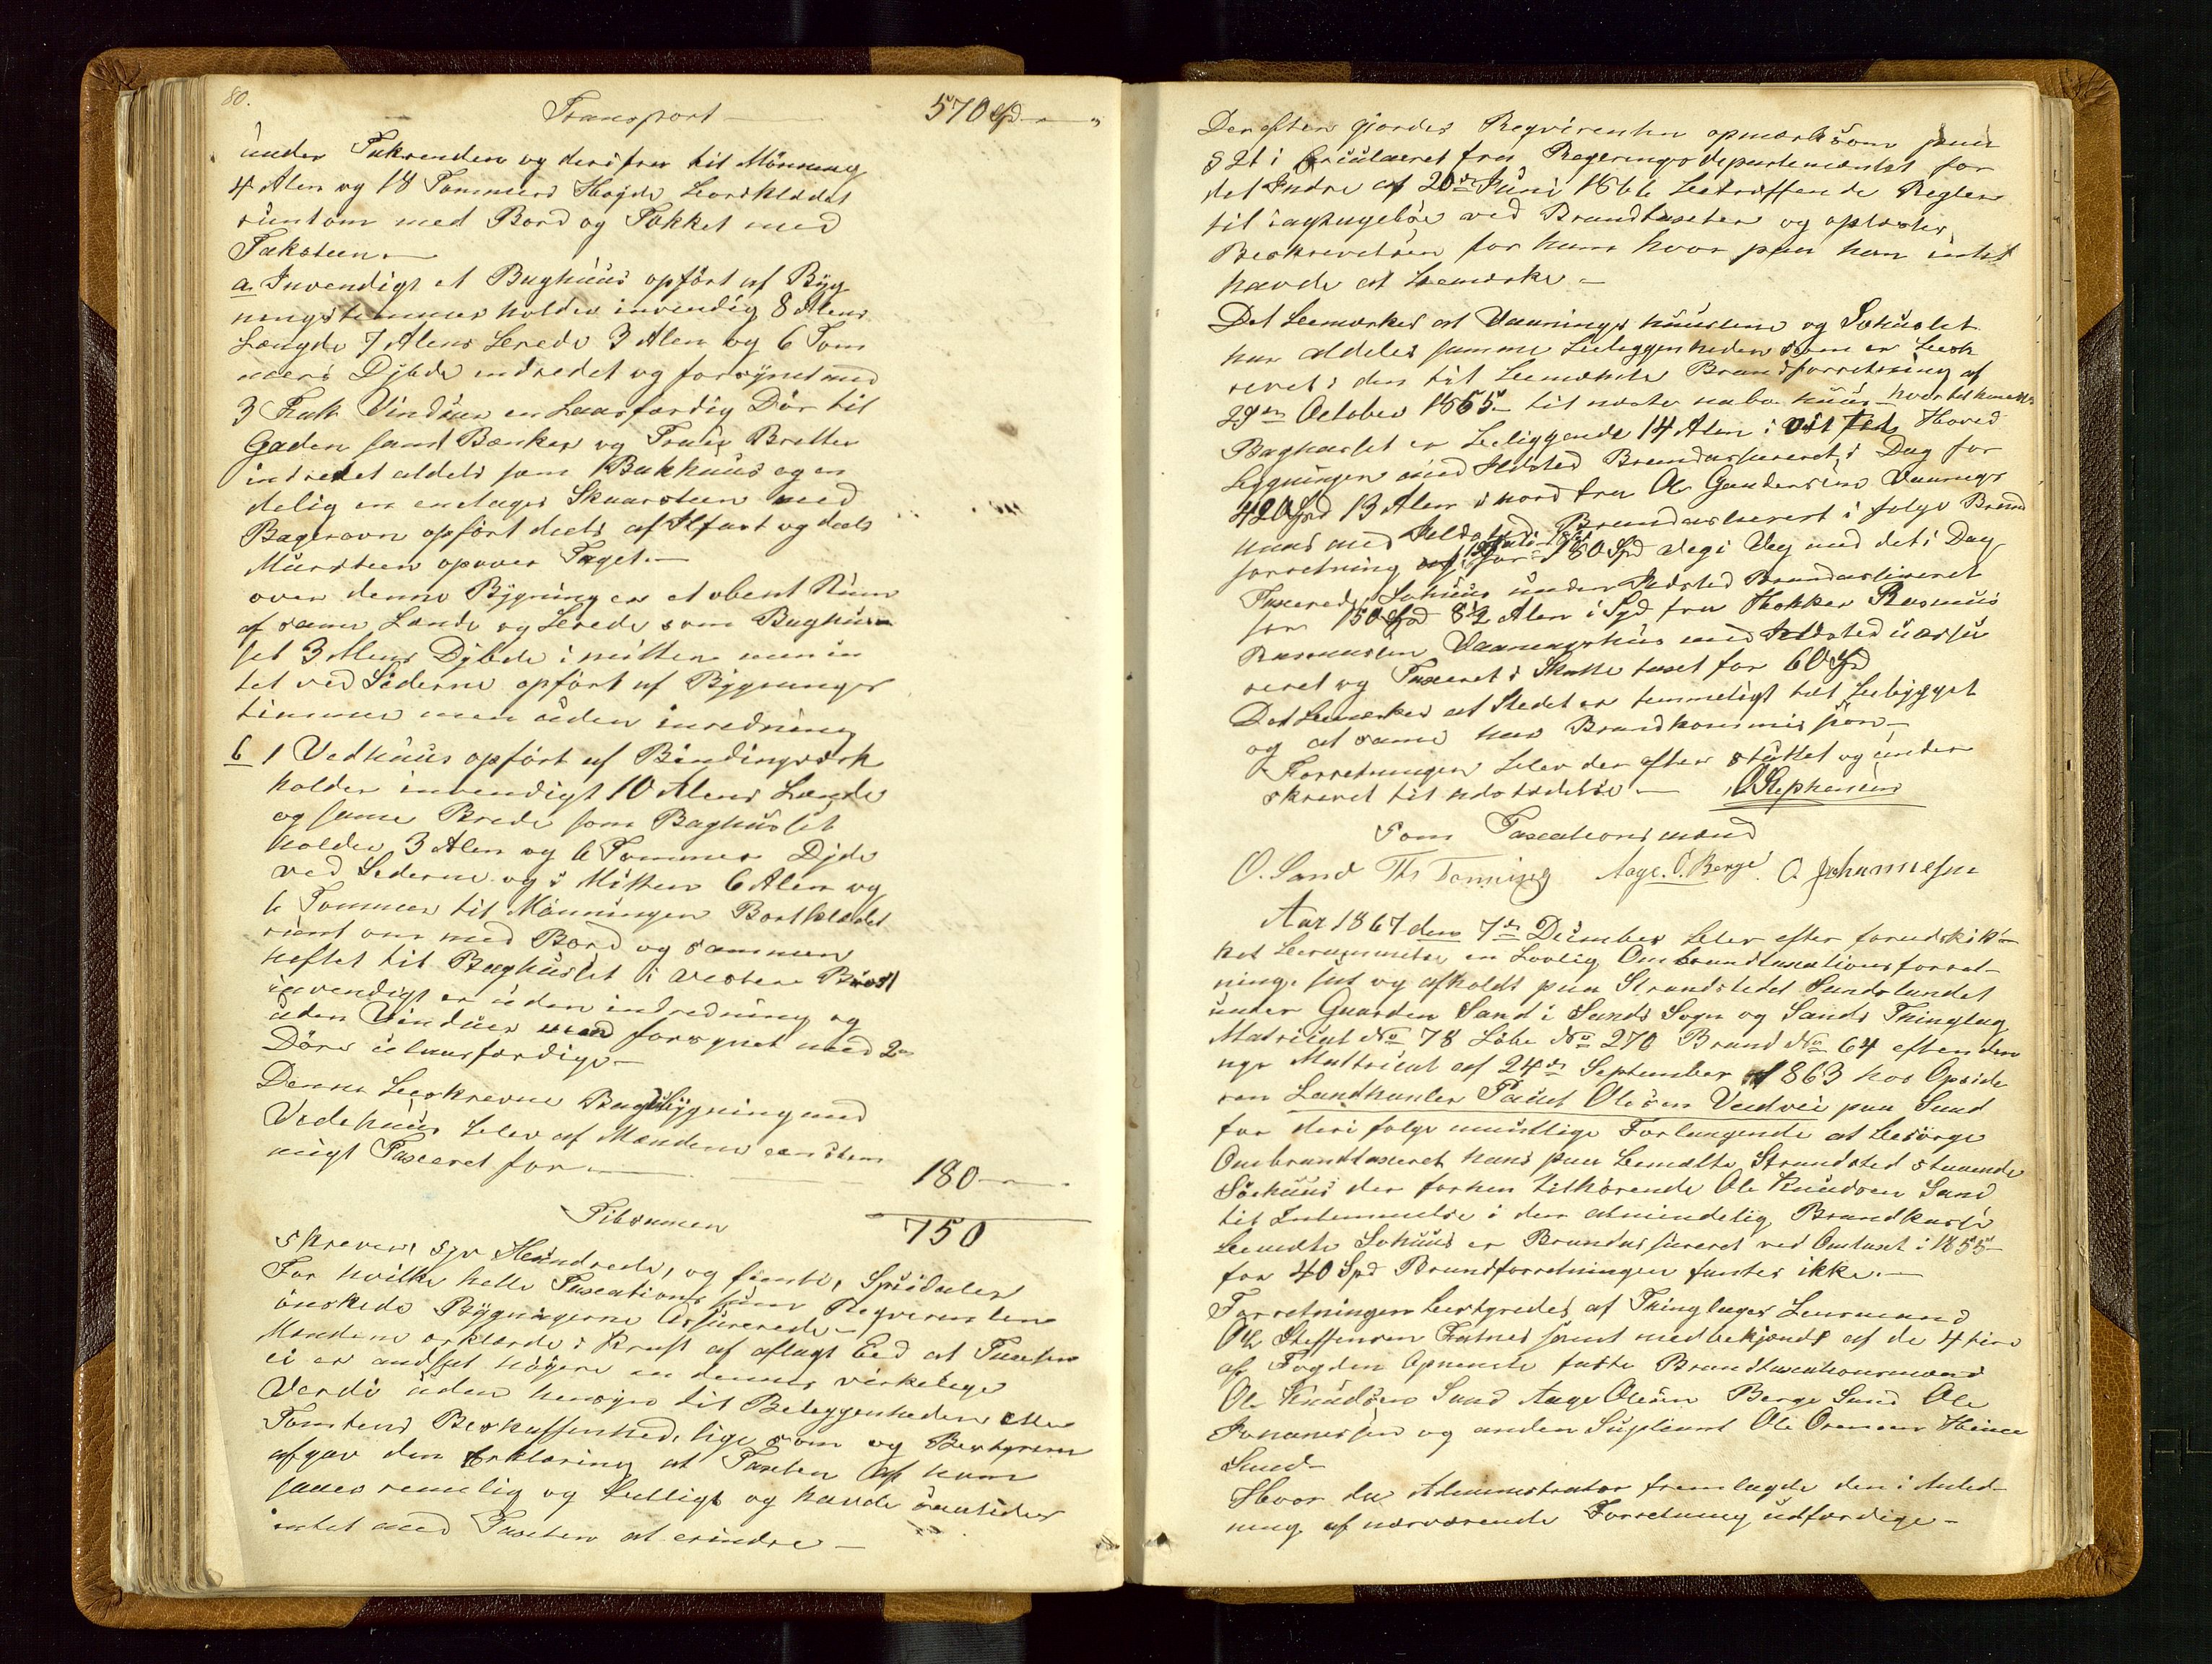 80.
Transport 570 Spd
under Takrenden og derifra til Mönning
4 Alen og 18 Tommers Høyde bordklædet
runtom med Bord og Tækket med
Taksteen.
a Invendigt et Baghuus opført af Byg
ningstømmer holder invendig 8 Alens
Længde 7 Alens brede 3 Alen og 6 Tom
mers Dybde indredet og forsynet med
3 Vinduer en Laasfærdig Dør til
Gaden samt Bænker og Bretter
indredet aldels som Bakhuus og en
delig en enetages Skaarsteen med
Bagerovn opført deels af og deels
Muursteen opover Taget.
over denne Bygning er et obent Rum
af samme Lænde og brede som Baghuu
set 3 Alens Dybde i mitten men in
tet ved Siderne opført af Bygnings
tømmer men uden inredning
b 1 Vedhuus opført af Bindingsværk
holder invendigt 10 Alens Lænde
og same Brede som Baghuuset
holder 3 Alen og 6 Tommer Djde
ved Siderne og i Mitten 6 Alen og
6 Tommer til Mönningen Bortklædet
runt om med Bord og sammen
heftet til Baghuuset i vestere
invendigt er uden indredning og
uden Vinduer men forsynet med 2
Døre ulaasfærdige
Denne beskrevne Bagbygning med
Vedehuus blev af Mændene eenstem
migt Taxeret for 180
Tilsamen 750
skrever, syv Hundrede, og femti, Spesidaler
For hvilke helle Taxations sum Reqvirenten
ønskede Bygningerne Assurerede
Mændene erklærde i Kraft af aflagt Eed at Taxten
ei er andsat høgere en dennes virkelige
Verdi uden hensyn til Beleggenheden eller
Tomtens Beskaffenhed, lige som og Bestyren
afgav den Erklæring at Taxten af ham
saaes remelig og billigt og havde
intet med Taxten at erindre
Derefter gjordes Reqvirenten opmærksom paa
§ 21 i Circulæret fra Regjeringsdepartementet for
det Indre af 20de Juni 1866 betreffende Regler
til iagttagelse ved Brandtaxter og oplæstes
Beskrivelsen for ham hvor paa han intet
havde at bemerke
Det bemerkes at Vaanings huusene og Søhuuset
har aldeles samme beleggenheden som er besk
revet i den til bemelte Brandforretning af
29de October 1865 til næste nabo huus
Baghuuset er beliggende 14 Alen i Hoved
bygningen med Ildsted Brandassureret i Dag for
420 Spd 13 Alen i nord fra Ole Vaanings
huus med Ildsted Brandassureret i følge Brand
forretning for 180 Spd Veg i Veg med det i Dag
Taxerede Søhuus uden Ildsted Brandassureret
for 150 Spd 8½ Alen i Syd fra Rasmus
Rasmussen Vaaningshus med Ildsted uassu
reret og Taxeret i Skatte taxet for 60 Spd
Det bemerkes at Stedet er temmeligt tæt bebygget
og at same har Brandkommission
Forretningen blev der efter sluttet og under
skrevet til udstædelse O Stephensen
Som Taxationsmænd
O. Sand Ths Tonning Aage. O. Berge O Johannesen
Aar 1867 den 7de December blev efter forudskik
ket berammelse en Lovlig Ombrandtaxationsforret
ning. sat og afholdt paa Strandstedet Sandslandet
under Gaarden Sand i Sands Sogn og Sands Thinglag
Matricul No 78 Löbe No 270 Brand No 64 efter den
nye Mattricul af 24de September 1863 hos Opside
ren Landhanler Paul Olesen Vadvei paa Sand
for der i følge muntlige Forlangende at besörge
Ombrandtaxeret hans paa bemelte Strandsted staaende
Søehuus der forhen tilhørende Ole Knudsen Sand
til Intemmelse i den almindelig Brandkasse
bemelte Søhuus er Brandassureret ved Omtaxt i 1855
for 40 Spd Brandforretningen fantes ikke.
Forretningen bestyredes af Thinglagets Lensmand
Ole Steffensen samt med bekjendt af de 4 fire
af Fogden Opnevnte faste Brandtaxationsmænd
Ole Knudsen Sand Aage Olesen Berge Sand Ole
Johannessen og anden Supliant Ole
Sand
Hvor da Administrator fremlagde den i Anled
ning af nærværende Forretning udfærdige